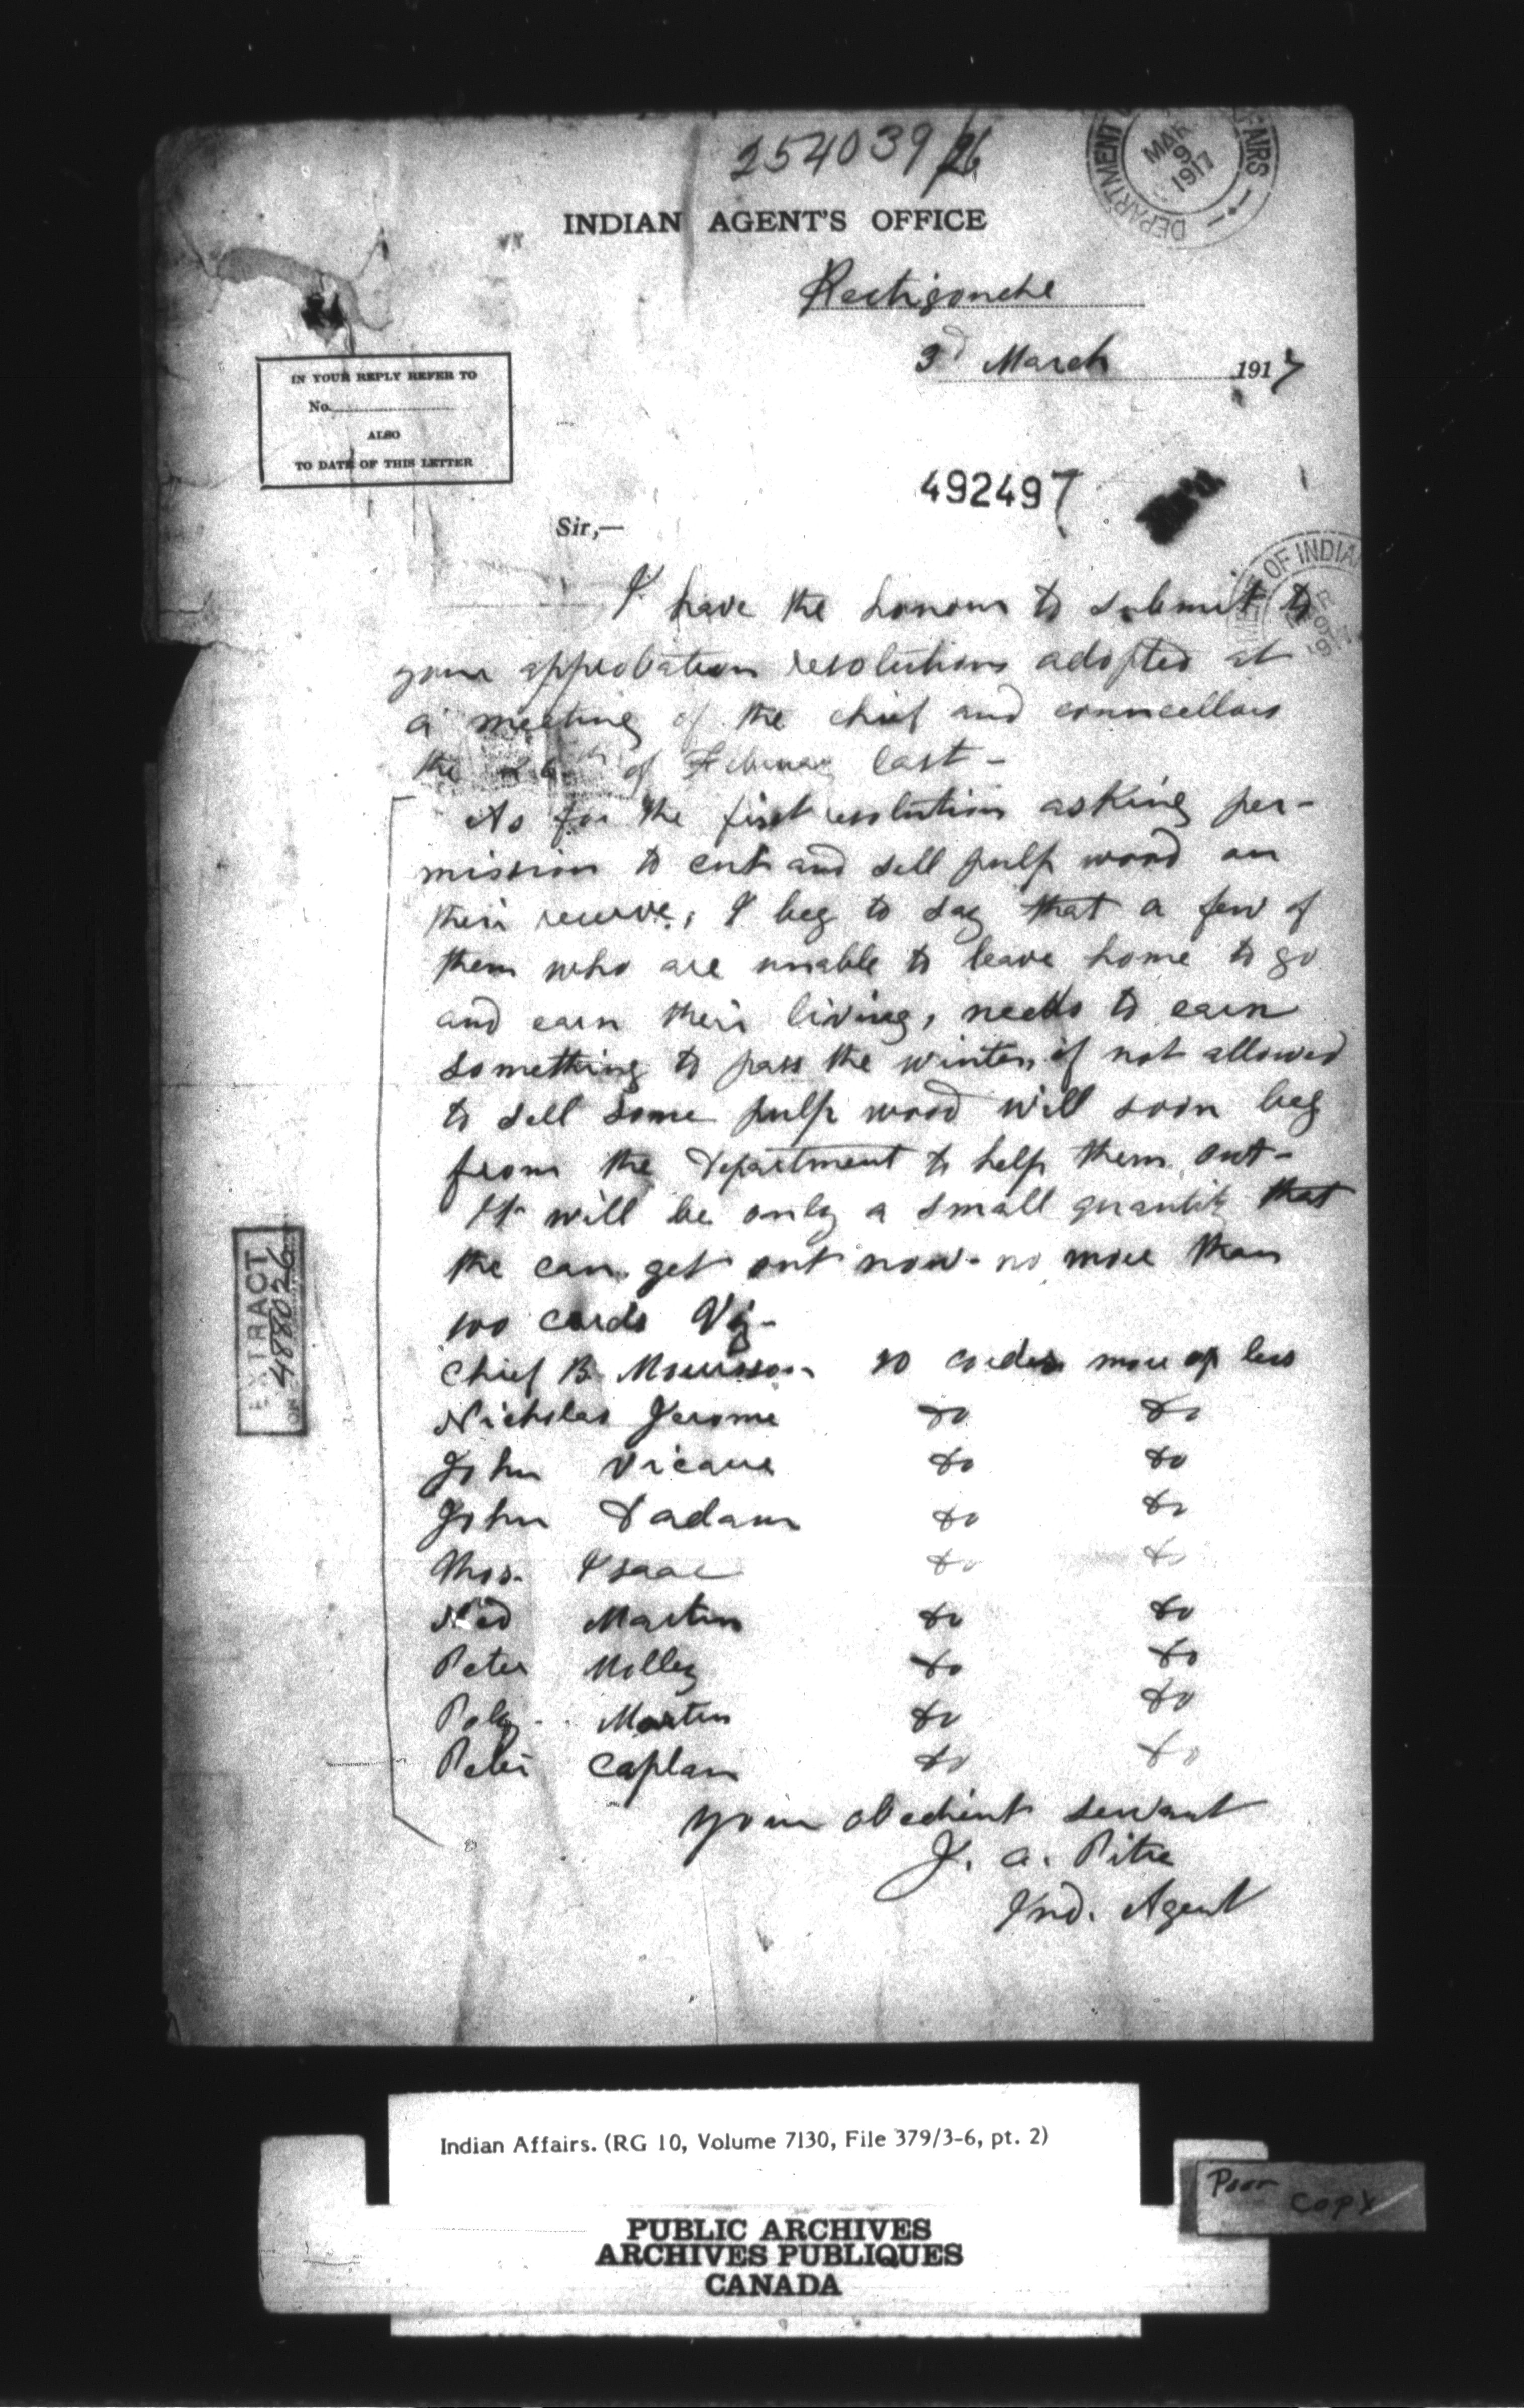 254039/26
DEPARTMENT AFFAIRS
MAR
9
1917
INDIAN AGENT'S OFFICE
Restigouche
3d March 1917
IN YOUR REPLY REFER TO
No.
ALSO
TO DATE OF THIS LETTER
492497
Sir,—
OF INDIAN
I have the honour to submit to
your approbation resolutions adopted at
a meeting of the chief and councellors
the of February last -
As for the first resolution asking per-
mission to cut and sell pulp wood on
their reserve, I beg to say that a few of
them who are unable to leave home to go
and earn their living, needs to earn
something to pass the winter, if not allowed
to sell some pulp wood will soon beg
from the Department to help them out -
It will be only a small quantity that
the can get out now - no more than
100 cords Viz -
Chief B. 10 cords more or less
Nicholas Jerome do do
John Vicaire do do
John Dadam do do
Thos. Isaac do do
Ned Martin do do
Peter Molley do do
Poly Martin do do
Peter Caplan do do
your obedient servant
J. A. Pitre
Ind. Agent
EXTRACT
ON 488026
Indian Affairs. (RG 10, Volume 7130, File 379/3-6, pt. 2)
Poor
copy
PUBLIC ARCHIVES
ARCHIVES PUBLIQUES
CANADA